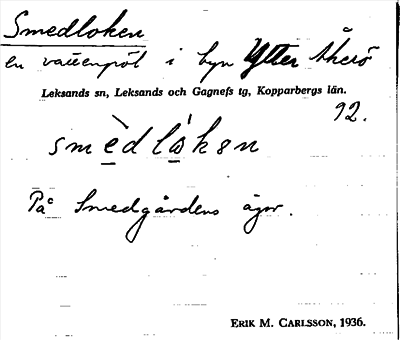 Smedloken
en vattenpöl i byn Ytter Åkerö
Leksands sn, Leksands och Gagnefs tg, Kopparbergs län.
92.
smèdlókən
På Smedgårdens ägor.
ERIK M. CARLSSON, 1936.